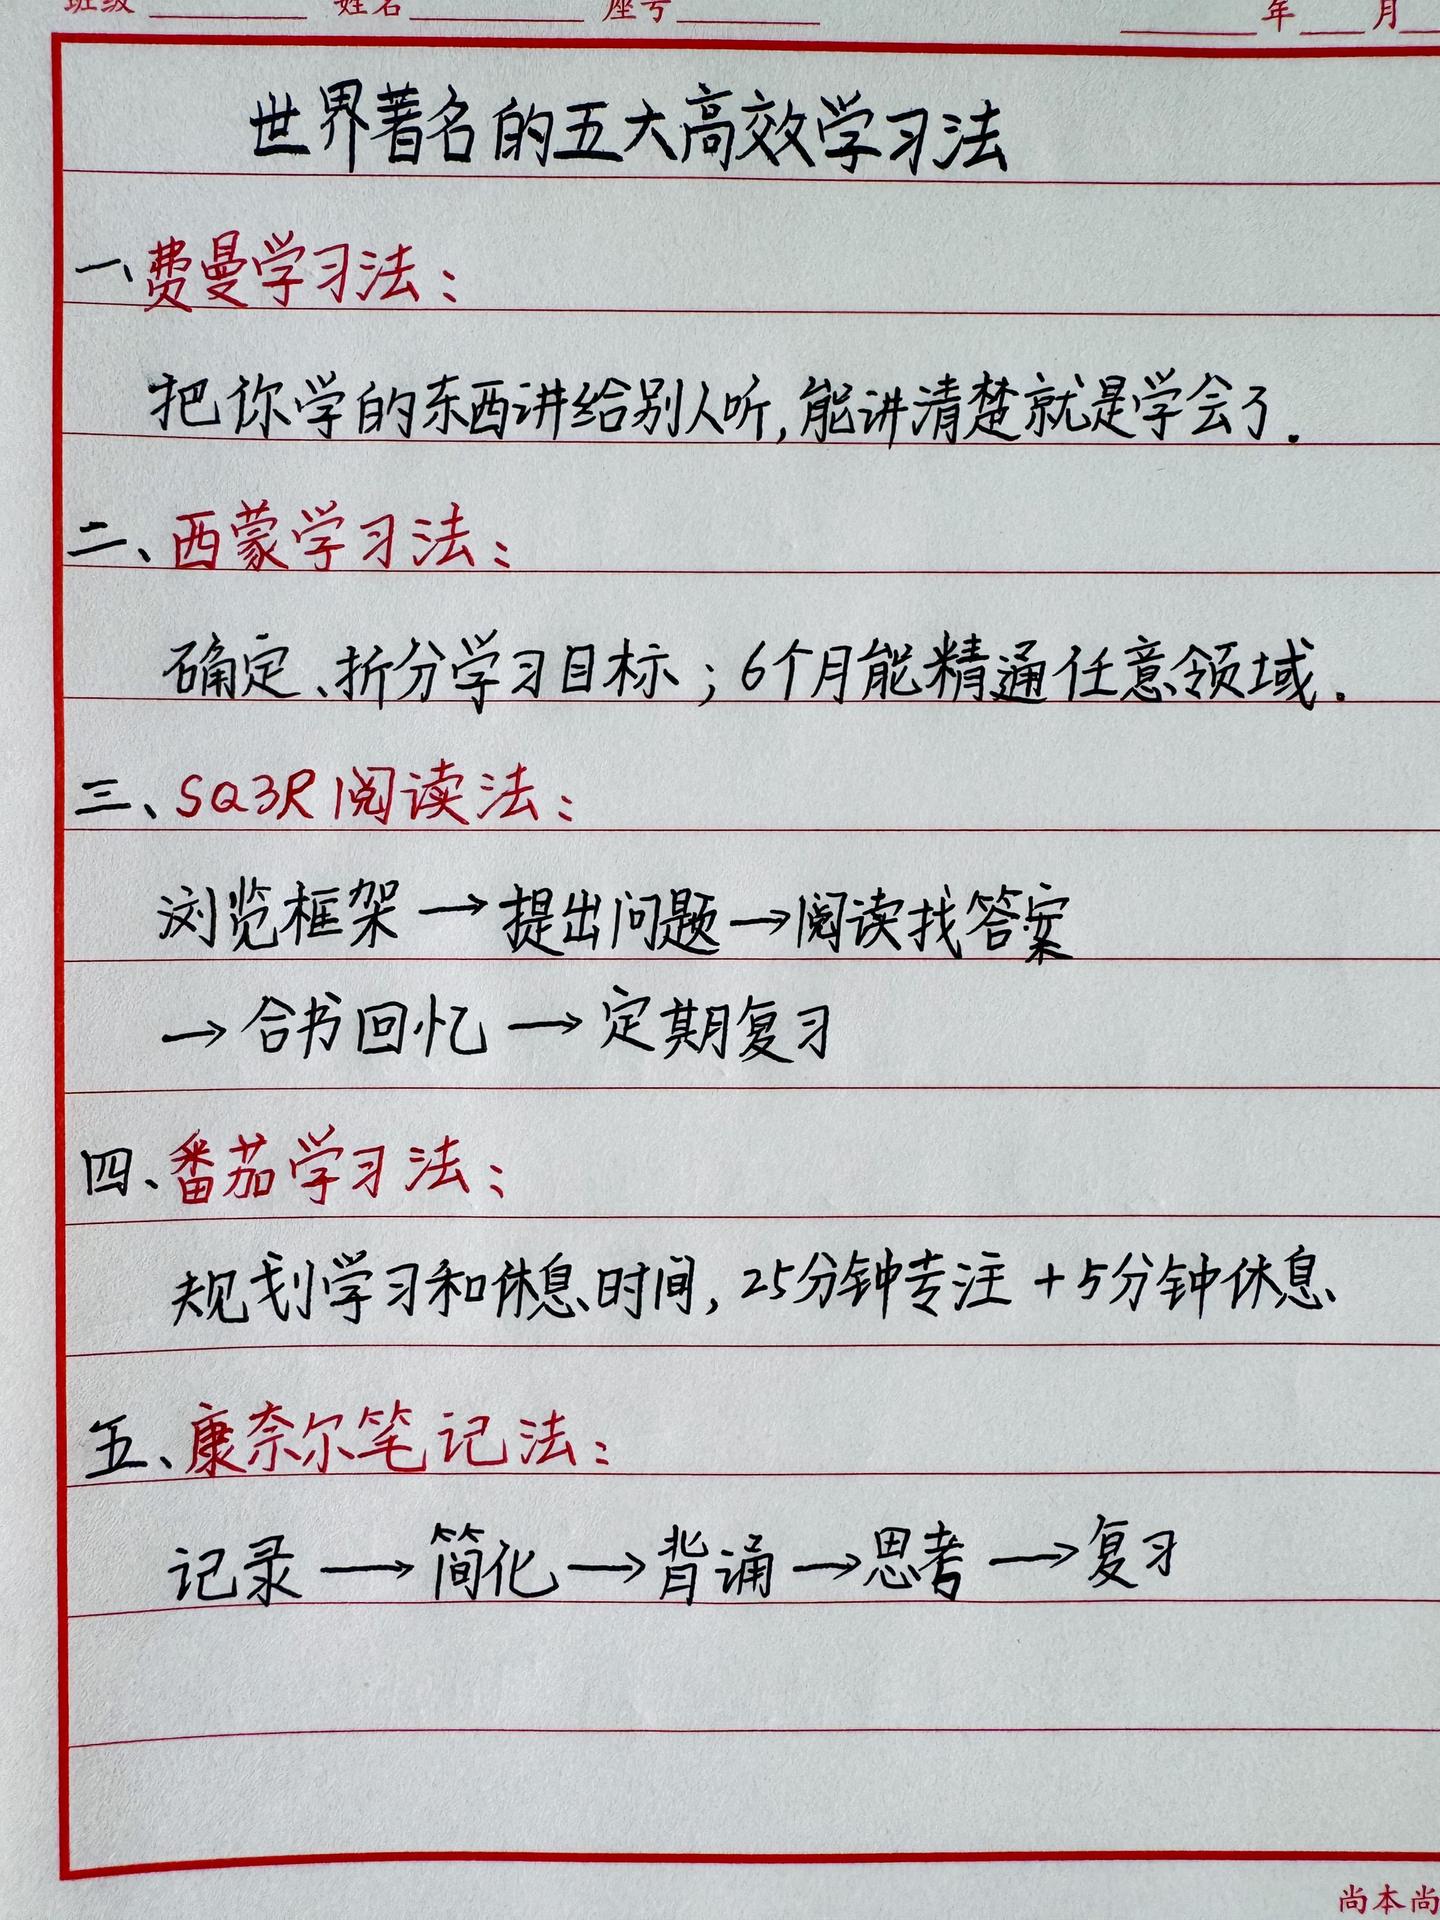 班级 姓名 座号 年 月
世界著名的五大高效学习法
一、费曼学习法：
把你学的东西讲给别人听，能讲清楚就是学会了.
二、西蒙学习法：
确定、折分学习目标；6个月能精通任意领域.
三、SQ3R阅读法：
浏览框架→提出问题→阅读找答案
→合书回忆→定期复习
四、番茄学习法：
规划学习和休息时间，25分钟专注+5分钟休息
五、康奈尔笔记法：
记录→简化→背诵→思考→复习
尚本尚